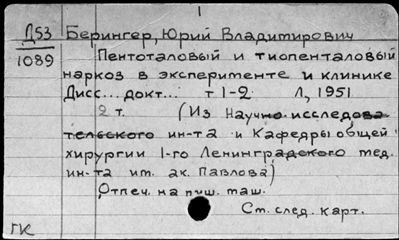 Д53 Берингер, Юрий Владимирович
1089 Пентоталовый и тиопенталовый
наркоз в эксперименте и клинике
Дисс... докт... т 1-2 Л, 1951
2 т. (Из Научно исследова
тельского ин-та и Кафедры общей
хирургии 1-го Ленинградского мед.
ин-та им. ак. Павлова)
Отпеч. на пиш. маш.
См. след. карт.
ГК